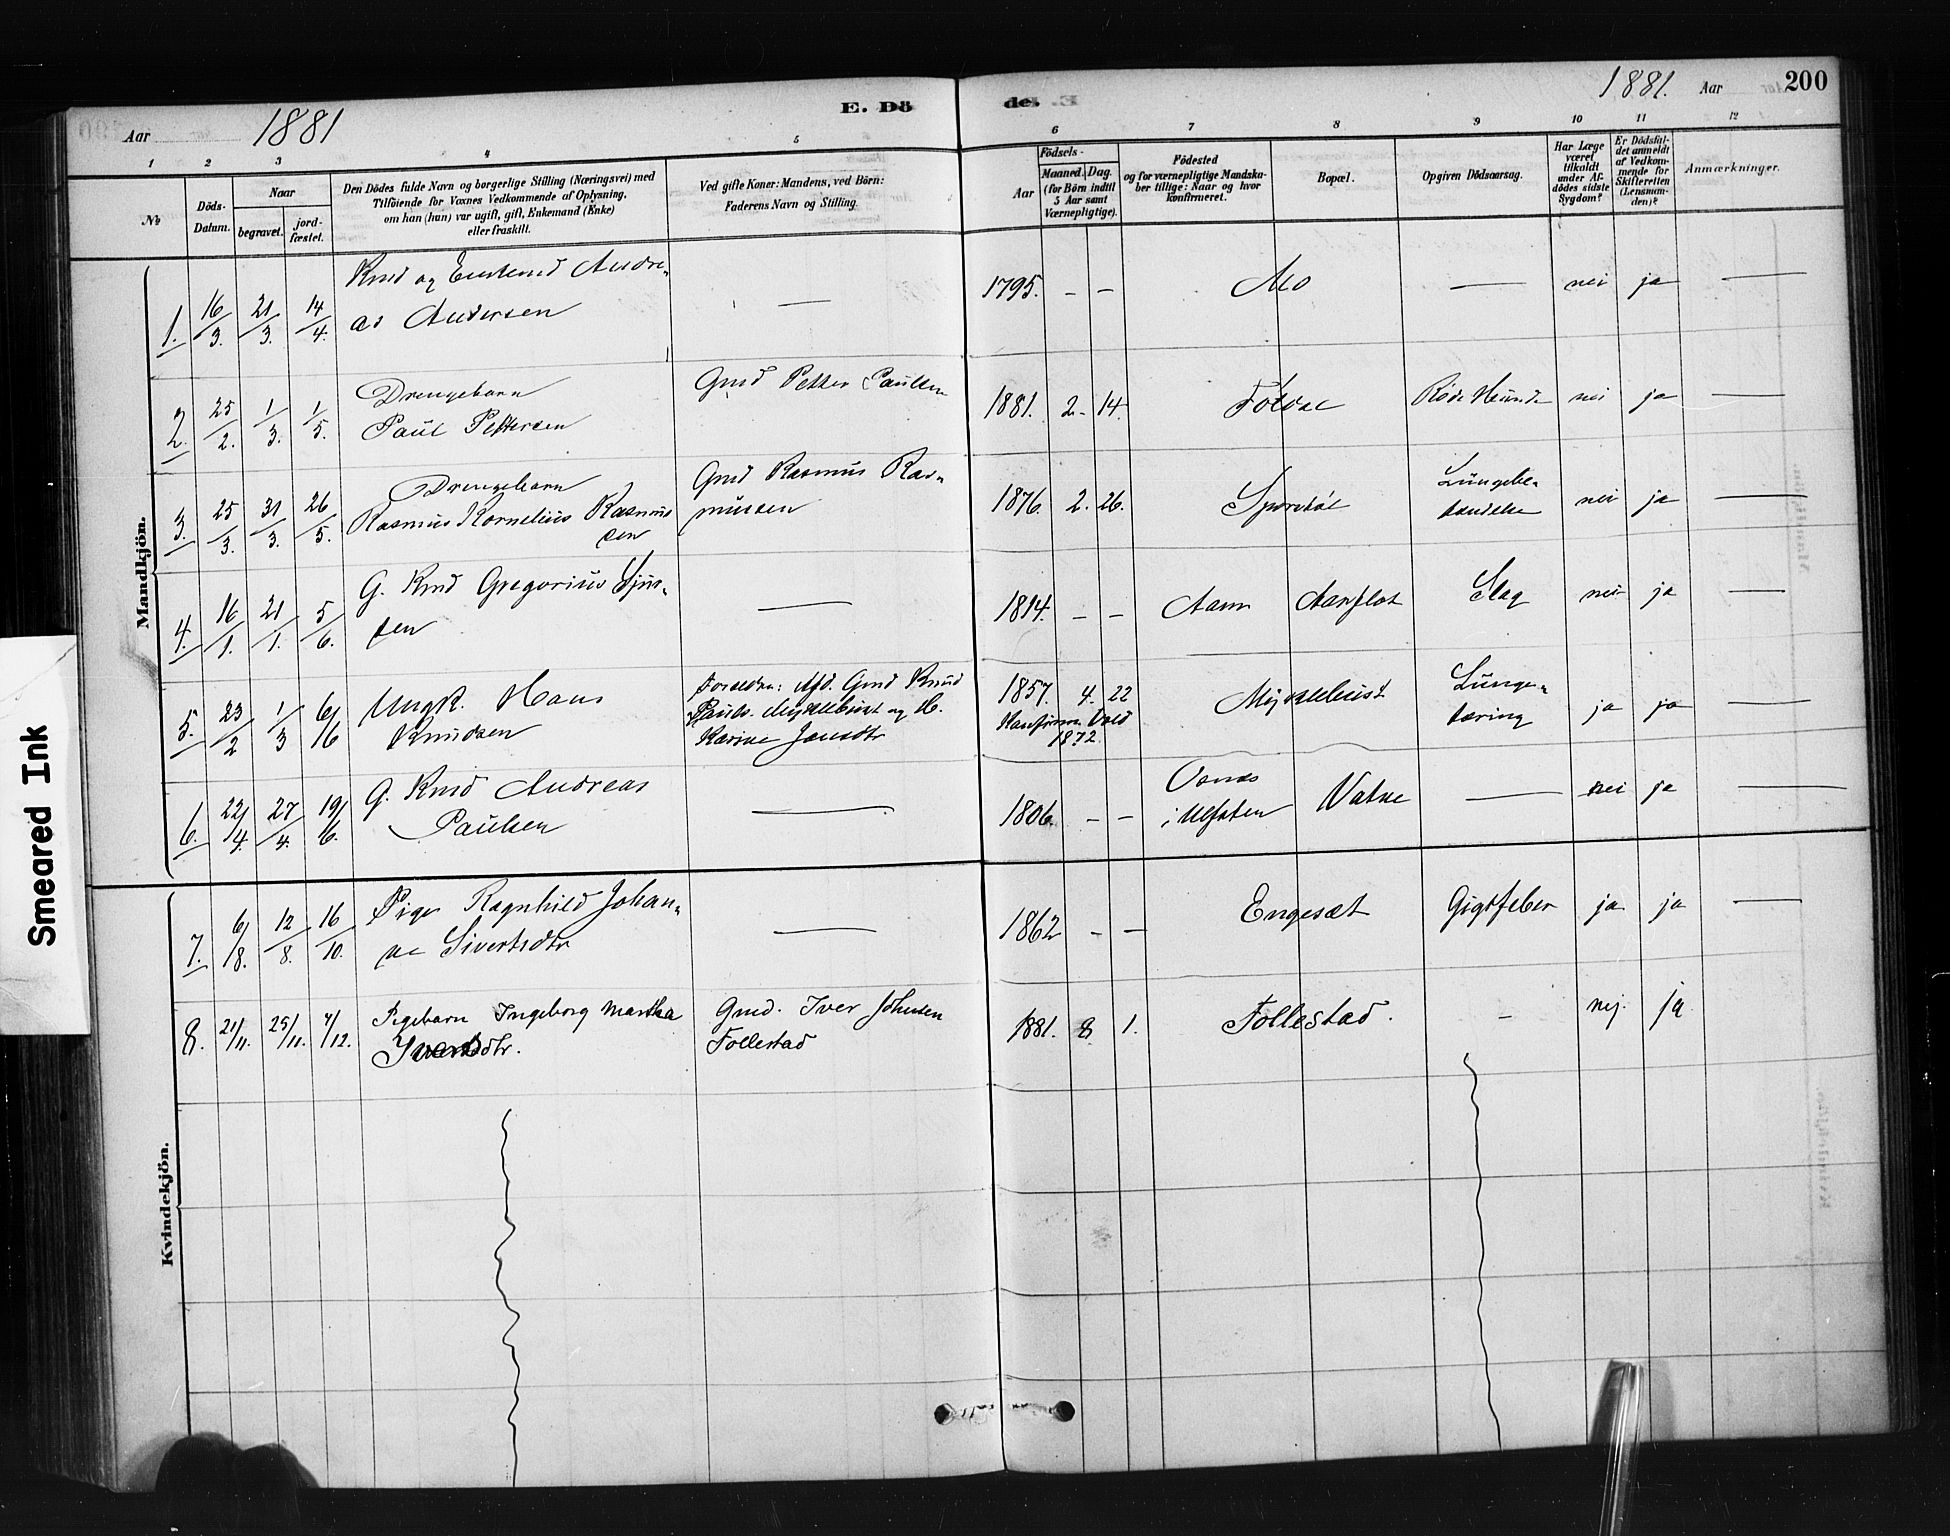 Aar 1881
E. Dö
de.
1881. Aar
200
1 2 3 4 5 6 7 8 9 10 11 12
№
Döds-
Datum.
Naar
begravet.
jord-
fæstet.
Den Dödes fulde Navn og borgerlige Stilling (Næringsvei) med
Tilföiende for Voxnes Vedkommende af Oplysning,
om han (hun) var ugift, gift, Enkemand (Enke)
eller fraskilt.
Ved gifte Koner: Mandens, ved Börn:
Faderens Navn og Stilling.
Födsels-
Aar
Maaned. Dag.
(for Börn indtil
5 Aar samt
Værnepligtige).
Födested
og for værnepligtige Mandska-
ber tillige: Naar og hvor
konfirmeret.
Bopæl.
Opgiven Dödsaarsag.
Har Læge
været
tilkaldt
under Af-
dödes sidste
Sygdom?
Er Dödsfal-
det anmeldt
af Vedkom-
mende for
Skifteretten
(Lensman-
den)?
Anmærkninger.
Mandkjön.
1. 16/3. 21/3. 14/4. Kmd og Enkemd Andre-
as Andersen — 1795. – – Mo — nei ja —
2. 25/2. 1/3. 1/5. Drengebarn
Paul Pettersen
Gmd Petter Paulsen
1881. 2. 14. Røde Hunde nei ja —
3. 25/3. 31/3. 26/5. Drengebarn
Rasmus Kornelius Rasmus
sen
Gmd Rasmus Ras-
mussen
1876. 2. 26. Lungebe-
tændelse nei ja —
4. 16/1. 21/1. 5/6. G. Kmd Gregorius
sen — 1814. – – Aam Aarflot Slag nei ja —
5. 23/2 1/3 6/6 Ungk. Hans
Knudsen
Forældre: Afd. Gmd Knud
Pauls. Myklebust og H.
Karine Jansdtr
1857. 4. 22
Konfirm. Vold
1872.
Myklebust
Lunge-
tæring ja ja —
6. 22/4. 27/4. 19/6. G. Kmd Andreas
Paulsen — 1806. – – Osnes
i Ulfsten Vatne — nei ja —
Kvindekjön.
7. 6/8. 12/8. 16/10. Pige Ragnhild Johan-
ne Sivertsdtr — 1862 – – Engesæt Gigtfeber ja ja —
8. 21/11. 25/11. 4/12. Pigebarn Ingeborg Martha
Iversdtr.
Gmd. Iver Johnsen
Follestad
1881. 8 1. Follestad. – nej. ja
Smeared Ink